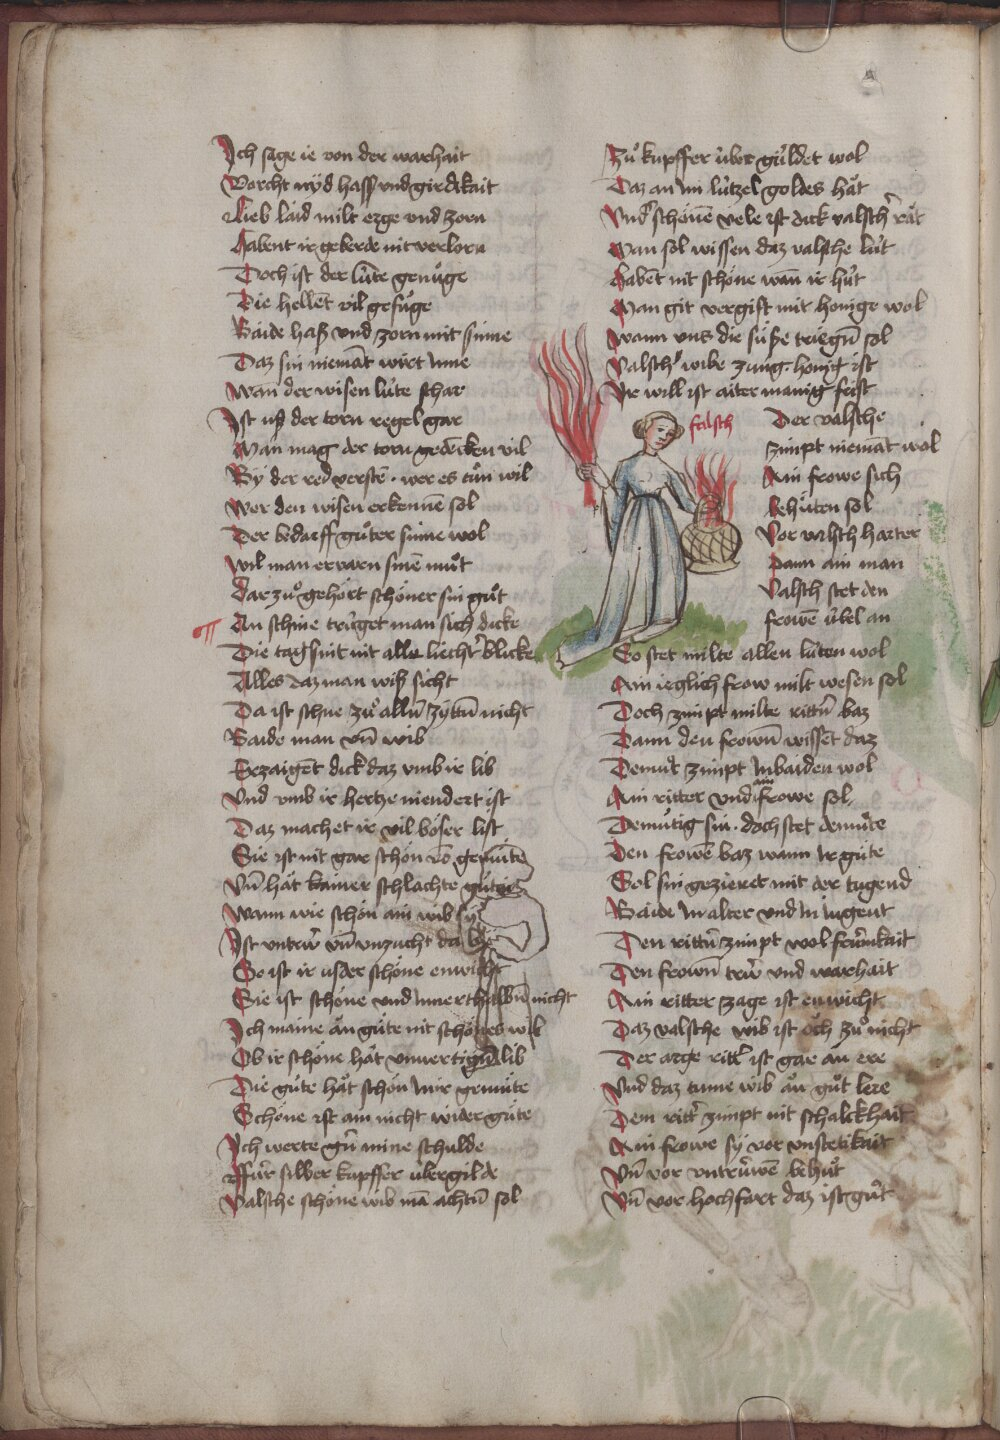 Ich sage ie von der warhait
Vorcht nÿd hass vnd girdikait
Lieb laid milt erge vnd zorn
Habent ir geberde nit verlorn
Doch ist der lüte genüge
Die hellēt vil gefüge
Baide haß vnd zorn mit sinne
Daz sin niemāt wirt Inne
Wan der wisen lüte schar
Ist uß der torn regel gar
Man mag der torn gedēcken vil
By der red verstē · wer es tůn wil
Wer den wisen erkennē sol
Der bedarff gůter sinne wol
Wil man ervarn sinē můt
Dar zů gehört schöner sin gůt
An schine trüget man sich dicke
Die tag sint nit alle liecht' blicke
Alles daz man wiß sicht
Da ist schne zů allen zÿtten nicht
Baide man vn̄ wib
Erzaigēt dick daz vmb ir lib
Vnd vmb ir hertze niendert ist
Daz machet ir vil böser list
Sie ist nit gar schön vō gemüte
Vn̄ hät kainer schlachte güte
Wann wie schön ain wib sÿ
Ist vntrw vn̄ vnzucht da bÿ
So ist ir usser schöne enwicht
Sie ist schöne vnd Innerthalbn̄ nicht
Ich maine än güte nit schönes wib
Ob ir schöne hät vnuertigen lib
Die güte hät schön Inir gemüte
Schöne ist ain nicht wider güte
Ich werte gen mine schulde
Ffür silber kupffer übergilde
Valsche schöne wib mā achtn̄ sol
Zů kupffer über güldet wol
Daz an im lützel goldes hät
Vnd' schönē vele ist dick valsch' rät
Man sol wissen daz valsche lüt
Habēt nit schöne wan̄ ir hüt
Man git vergift mit honige wol
Wann vns die süße triegn̄ sol
Valsch' wibe zung honig ist
Ir will ist aiter manig frist
falsch
Der valsche
zimpt niemāt wol
Ain frowe sich
behüten sol
Vor valsch harter
Dann ain man
Valsch stet den
frowē übel an
So stet milte allen lüten wol
Ain ieglich frow milt wesen sol
Doch zimpt milte rittn̄ baz
Dann den frown̄ wissēt daz
Demut zimpt Inbaiden wol
Ain ritter vnd ain frowe sol
Demütig sin · doch stet demüte
Den frowē baz wann Ir güte
Sol sin gezieret mit der tugend
Baide In alter vnd In iugent
Den rittn̄ zimpt wol frümkait
Den frown̄ trw vnd warhait
Ain ritter zage ist enwicht
Daz valsche wib ist öch zů nicht
Der arge ritt' ist gar än ere
Vnd daz tume wib än gůt lere
Dem ritt' zimpt nit schalckhait
Ain frowe sÿ vor vnstetikait
Vn̄ vor vntrüwē behůt
Vn̄ vor hochfart daz ist gůt